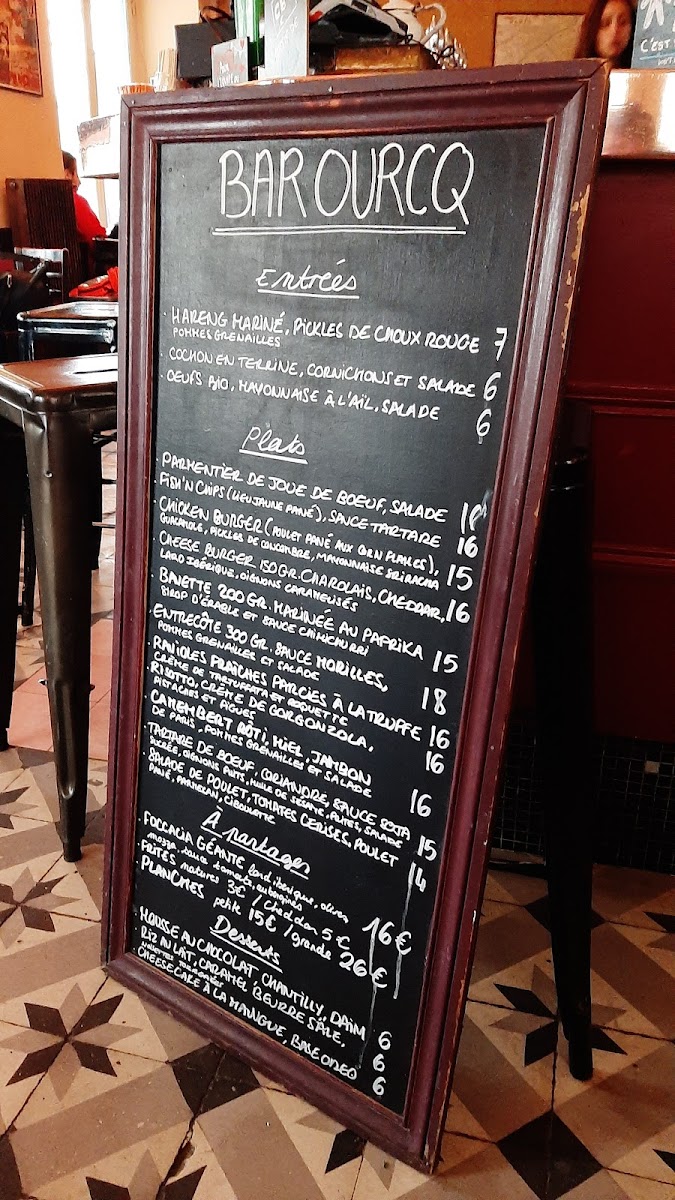 C'EST
BAR OURCQ
Entrées
. HARENG MARINÉ, PICKLES DE CHOUX ROUGE 7
POMMES GRENAILLES
. COCHON EN TERRINE, CORNICHONS ET SALADE 6
. OEUFS BIO, MAYONNAISE À L'AIL, SALADE 6
Plats
. PARMENTIER DE JOUE DE BOEUF, SALADE
. FISH'N CHIPS (LIEU JAUNE PANÉ), SAUCE TARTARE 16
. CHICKEN BURGER (POULET PANÉ AUX CORN FLAKES), 15
GUACAMOLE, PICKLES DE CONCOMBRE, MAYONNAISE SRIRACHA
. CHEESE BURGER 150 GR. CHAROLAIS, CHEDDAR, 16
LARD IBÉRIQUE, OIGNONS CARAMELISÉS
. BAVETTE 200 GR. MARINÉE AU PAPRIKA 15
SIROP D'ÉRABLE ET SAUCE CHIMICHURRI
. ENTRECÔTE 300 GR. SAUCE MORILLES, 18
POMMES GRENAILLES ET SALADE
. RAVIOLES FRAÎCHES FARCIES À LA TRUFFE 16
CRÈME DE TARTUFFATA ET ROQUETTE
. RISOTTO, CRÈME DE GORGONZOLA, 16
PISTACHES ET FIGUES
. CAMEMBERT RÔTI, MIEL, JAMBON 16
DE PARIS, POMMES GRENAILLES ET SALADE
. TARTARE DE BOEUF, CORIANDRE, SAUCE SOJA 15
SUCRÉE, OIGNONS FRITS, HUILE DE SÉSAME, FRITES, SALADE
. SALADE DE POULET, TOMATES CERISES, POULET 14
PANÉ, PARMESAN, CIBOULETTE
À partager
. FOCCACIA GÉANTE, lard ibérique, olives 16€
mozza, sauce tomate, aubergines
. FRITES natures 3€ / Cheddar 5€
. PLANCHES petite 15€ / grande 26€
Desserts
. MOUSSE AU CHOCOLAT, CHANTILLY, DAIM 6
. RIZ AU LAIT, CARAMEL BEURRE SALÉ, 6
. CHEESECAKE À LA MANGUE, BASE OREO 6